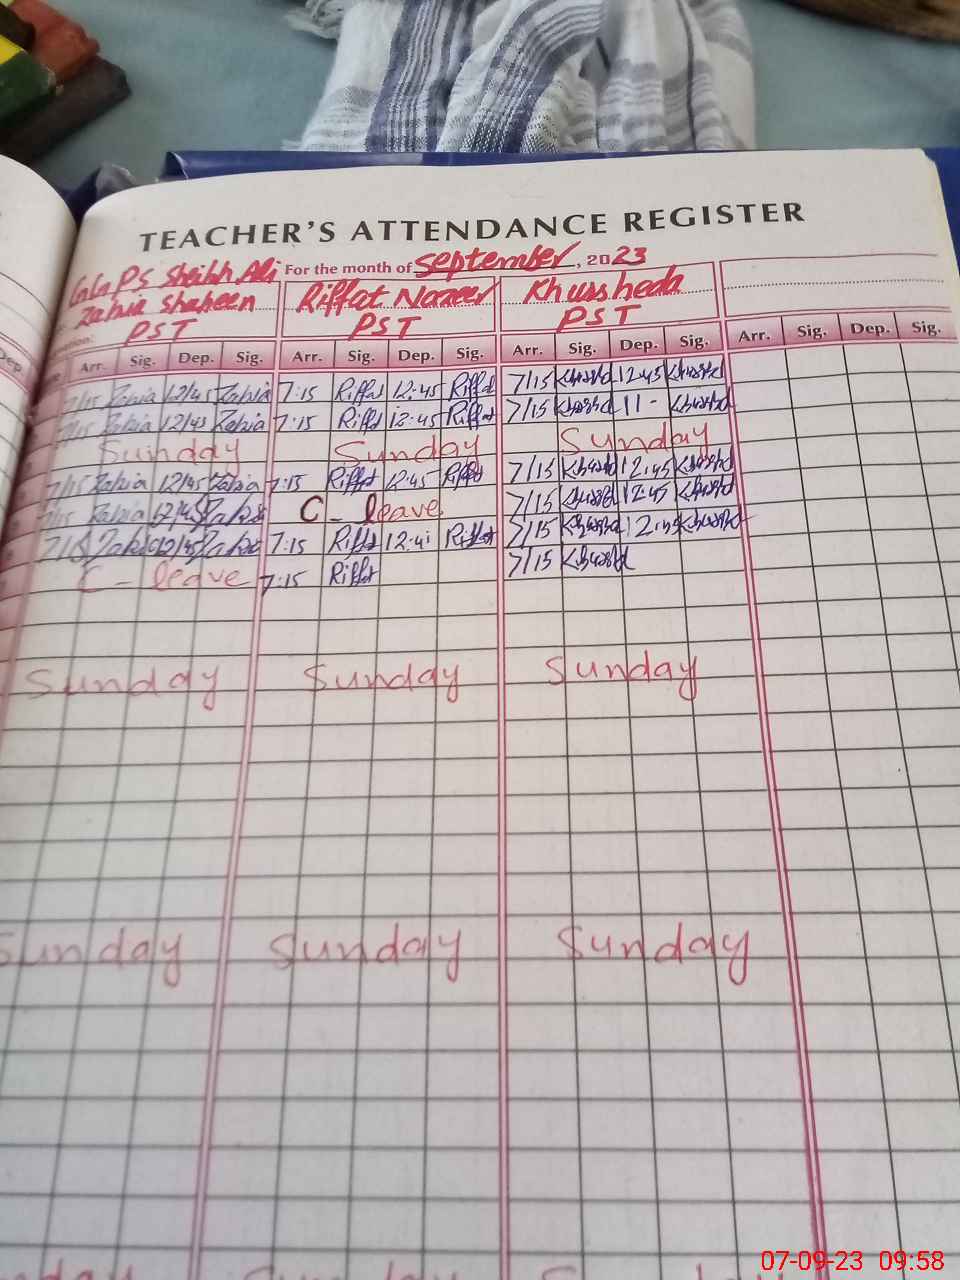 TEACHER'S ATTENDANCE REGISTER
GGPS Sheikh Ali For the month of September, 2023
Zahia Shaheen Riffat Nazeer Khursheda
PST PST PST
Arr. Sig. Dep. Sig. Arr. Sig. Dep. Sig. Arr. Sig. Dep. Sig. Arr. Sig. Dep. Sig.
7/15 Zahia 12/45 Zahia 7:15 Riffat 12:45 Riffat 7/15 12:45
7/15 Zahia 12/45 Zahia 7:15 Riffat 12:45 Riffat 7/15 11-
Sunday Sunday Sunday
7/15 Zahia 12/45 Zahia 7:15 Riffat 12:45 Riffat 7/15 12:45
7/15 Zahia 12/45 Zahia C - leave 7/15 12:45
7/15 Zahia 12/45 Zahia 7:15 Riffat 12:41 Riffat 7/15 12:45
C - leave 7:15 Riffat 7/15
Sunday Sunday Sunday
Sunday Sunday Sunday
Sunday Sunday Sunday
07-09-23 09:58